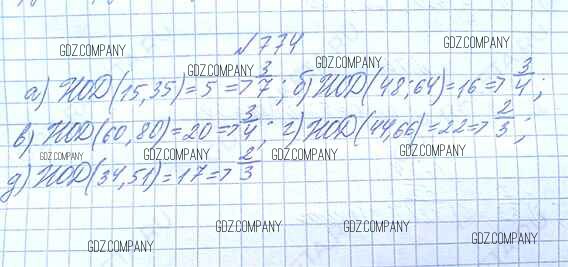 №774
а) НОД(15,35)=5=>3/7; б) НОД(48;64)=16=>3/4;
в) НОД(60,80)=20=>3/4; г) НОД(44,66)=22=>2/3;
д) НОД(34,51)=17=>2/3
GDZ.COMPANY GDZ.COMPANY
GDZ.COMPANY GDZ.COMPANY
GDZ.COMPANY GDZ.COMPANY GDZ.COMPANY GDZ.COMPANY
GDZ.COMPANY GDZ.COMPANY
GDZ.COMPANY GDZ.COMPANY